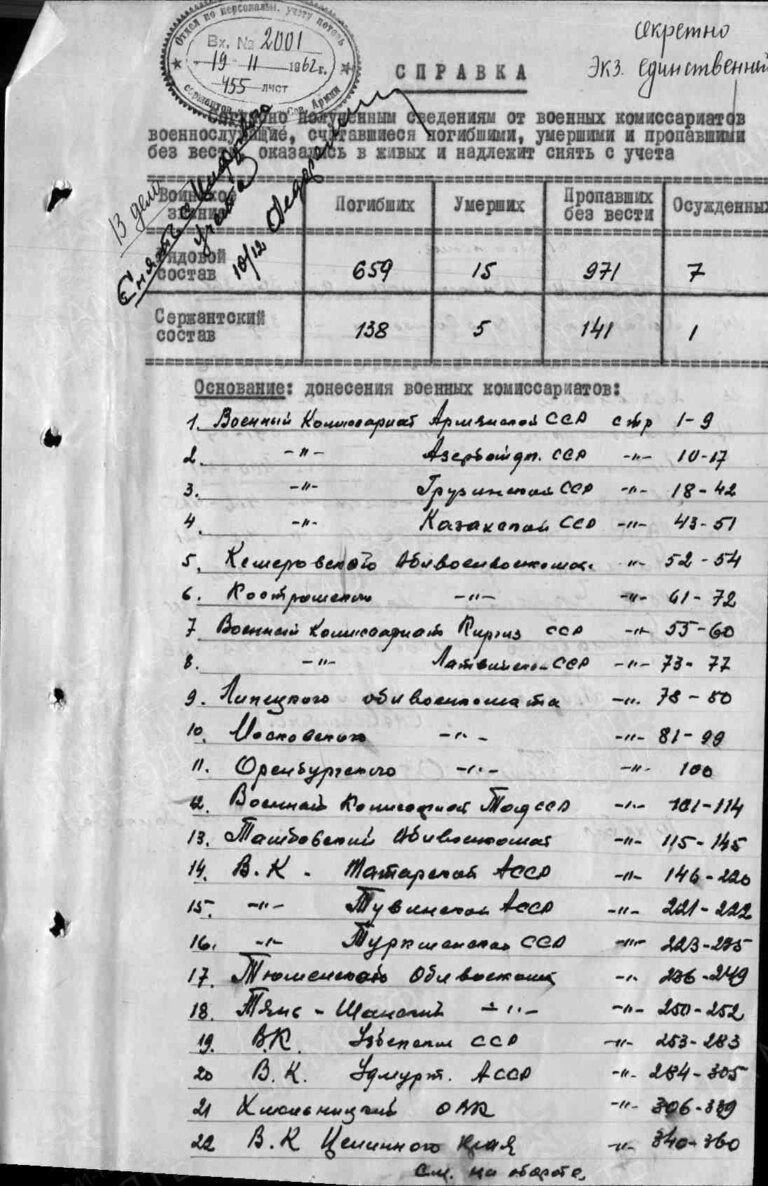 Отдел по персональн. учету потерь
Вх. № 2001
19 - 11 1962 г.
455 лист
сержантов и Сов. Армии
секретно
Экз. единственный
СПРАВКА
Согласно полученным сведениям от военных комиссариатов
военнослужащие, считавшиеся погибшими, умершими и пропавшими
без вести оказались в живых и надлежит снять с учета
В дело
Снять с
учета
10/12
Воинское звание
Погибших
Умерших
Пропавших без вести
Осужденных
Рядовой состав
659 15 971 7
Сержантский состав
138 5 141 1
Основание: донесения военных комиссариатов:
1. Военный Комиссариат Армянской ССР стр 1-9
2. -"- Азербайдж. ССР -"- 10-17
3. -"- Грузинской ССР -"- 18-42
4. -"- Казахской ССР -"- 43-51
5. Кемеровского Облвоенкомат -"- 52-54
6. Костромской -"- -"- 61-72
7 Военный Комиссариат Киргиз ССР -"- 55-60
8. -"- Латвийской ССР -"- 73-77
9. Липецкого облвоенкомата -"- 78-80
10. Московского -"- -"- 81-99
11. Оренбургского -"- -"- 100
12. Военный Комиссариат Тад ССР -"- 101-114
13. Тамбовский Облвоенкомат -"- 115-145
14. В.К - Татарской АССР -"- 146-220
15. -"- Тувинской АССР -"- 221-222
16. -"- Туркменской ССР -"- 223-235
17. Тюменского Облвоенком -"- 236-249
18. Тянь-Шанский -"- -"- 250-252
19. В.К. Узбекской ССР -"- 253-283
20 В.К. Удмурт. АССР -"- 284-305
21 Хмельницкий ОВК -"- 306-339
22 В.К Целинного Края -"- 340-360
см. на обороте